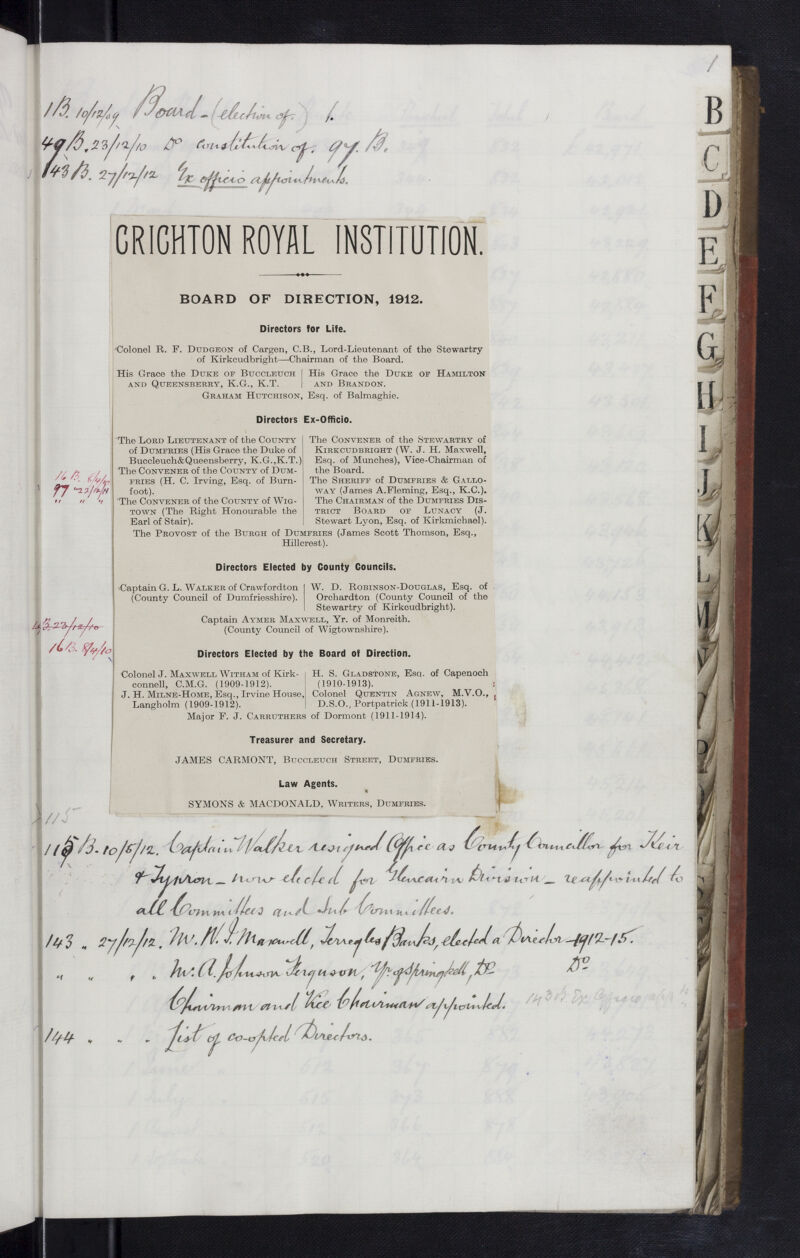 1
1B. 10/12/09 Board - (election of.) 1.
49B. 23/12/10 Do constitution of. 97. B.
143 B. 27/12/12 Ex officio appointments.
CRICHTON ROYAL INSTITUTION.
BOARD OF DIRECTION, 1912.
Directors for Life.
Colonel R. F. DUDGEON of Cargen, C.B., Lord-Lieutenant of the Stewartry
of Kirkcudbright—Chairman of the Board.
His Grace the DUKE OF BUCCLEUCH
AND QUEENSBERRY, K.G., K.T.
His Grace the DUKE OF HAMILTON
AND BRANDON.
GRAHAM HUTCHISON, Esq. of Balmaghie.
Directors Ex-Officio.
The LORD LIEUTENANT of the COUNTY
of DUMFRIES (His Grace the Duke of
Buccleuch&Queensberry, K.G.,K.T.)
The CONVENER of the COUNTY of DUM-
FRIES (H. C. Irving, Esq. of Burn-
foot).
The CONVENER of the COUNTY of WIG-
TOWN (The Right Honourable the
Earl of Stair).
The CONVENER of the STEWARTRY of
KIRKCUDBRIGHT (W. J. H. Maxwell,
Esq. of Munches), Vice-Chairman of
the Board.
The SHERIFF of DUMFRIES & GALLO-
WAY (James A.Fleming, Esq., K.C.).
The CHAIRMAN of the DUMFRIES DIS-
TRICT BOARD OF LUNACY (J.
Stewart Lyon, Esq. of Kirkmichael).
The PROVOST of the BURGH of DUMFRIES (James Scott Thomson, Esq.,
Hillcrest).
16 B.
97 " 23/12/11
" " "
Directors Elected by County Councils.
Captain G. L. WALKER of Crawfordton
(County Council of Dumfriesshire).
W. D. ROBINSON-DOUGLAS, Esq. of
Orchardton (County Council of the
Stewartry of Kirkcudbright).
Captain AYMER MAXWELL, Yr. of Monreith.
(County Council of Wigtownshire).
B. 23/12/10
16 B. 8/4/10
Directors Elected by the Board of Direction.
Colonel J. MAXWELL WITHAM of Kirk-
connell, C.M.G. (1909-1912).
J. H. MILNE-HOME, Esq., Irvine House,
Langholm (1909-1912).
H. S. GLADSTONE, Esq. of Capenoch
(1910-1913).
Colonel QUENTIN AGNEW, M.V.O.,
D.S.O., Portpatrick (1911-1913).
Major F. J. CARRUTHERS of Dormont (1911-1914).
Treasurer and Secretary.
JAMES CARMONT, BUCCLEUCH STREET, DUMFRIES.
Law Agents.
SYMONS & MACDONALD, WRITERS, DUMFRIES.
115
115 B. 10/5/12. Captain Walker resigned Office as County Councillor for Keir
& Tynron - now elected for Glencairn Division - reappointed to
all Committees and Sub Committees.
143 " 27/12/12. Mr. W. J. Maxwell, Terregles Banks, elected a Director 1912-15.
" " " " Mr. A. Johnson Ferguson, Yr. of Springkell, Do Do
Chairman and Vice Chairman appointed.
144 " " " List of co-opted Directors.
B
C
D
E
F
G
H
I
J
K
L
M